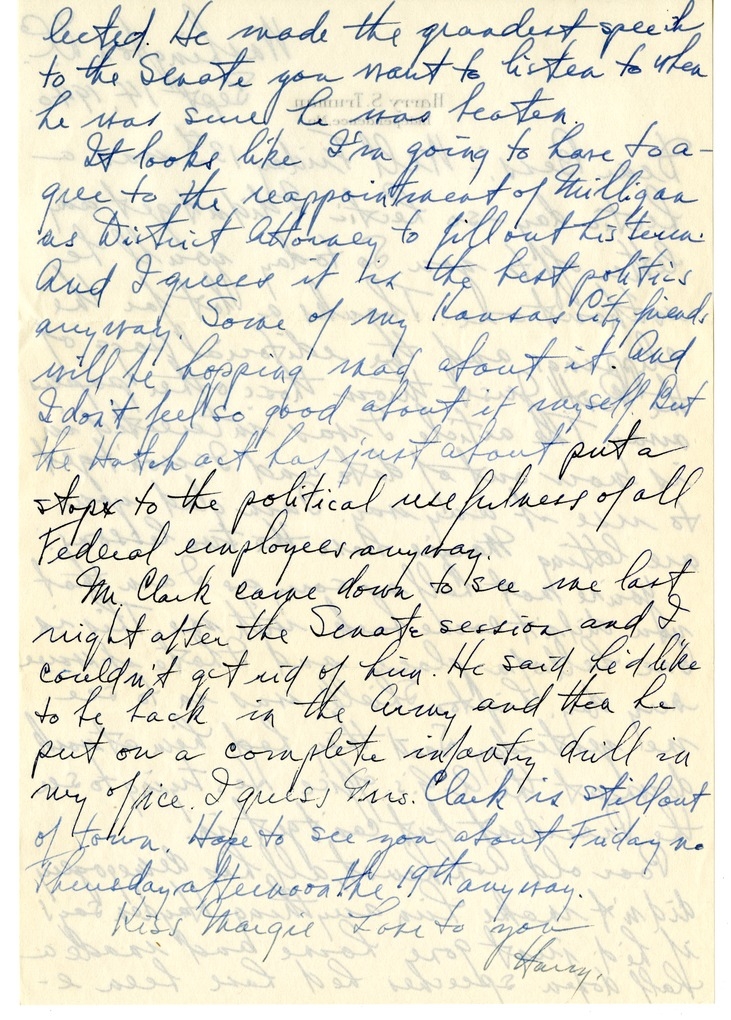 lected. He made the grandest speech
to the Senate you want to listen to when
he was sure he was beaten.
It looks like I'm going to have to a-
gree to the reappointment of Milligan
as District Attorney to fill out his term.
And I guess it is the best politics
anyway. Some of my Kansas City friends
will be hopping mad about it. And
I don't feel so good about it myself. But
the Hatch act has just about put a
stop to the political usefulness of all
Federal employees anyway.
Mr. Clark came down to see me last
night after the Senate session and I
couldn't get rid of him. He said he'd like
to be back in the Army and then he
put on a complete infantry drill in
my office. I guess Mrs. Clark is still out
of town. Hope to see you about Friday no
Thursday afternoon the 19th anyway.
Kiss Margie Love to you
Harry.